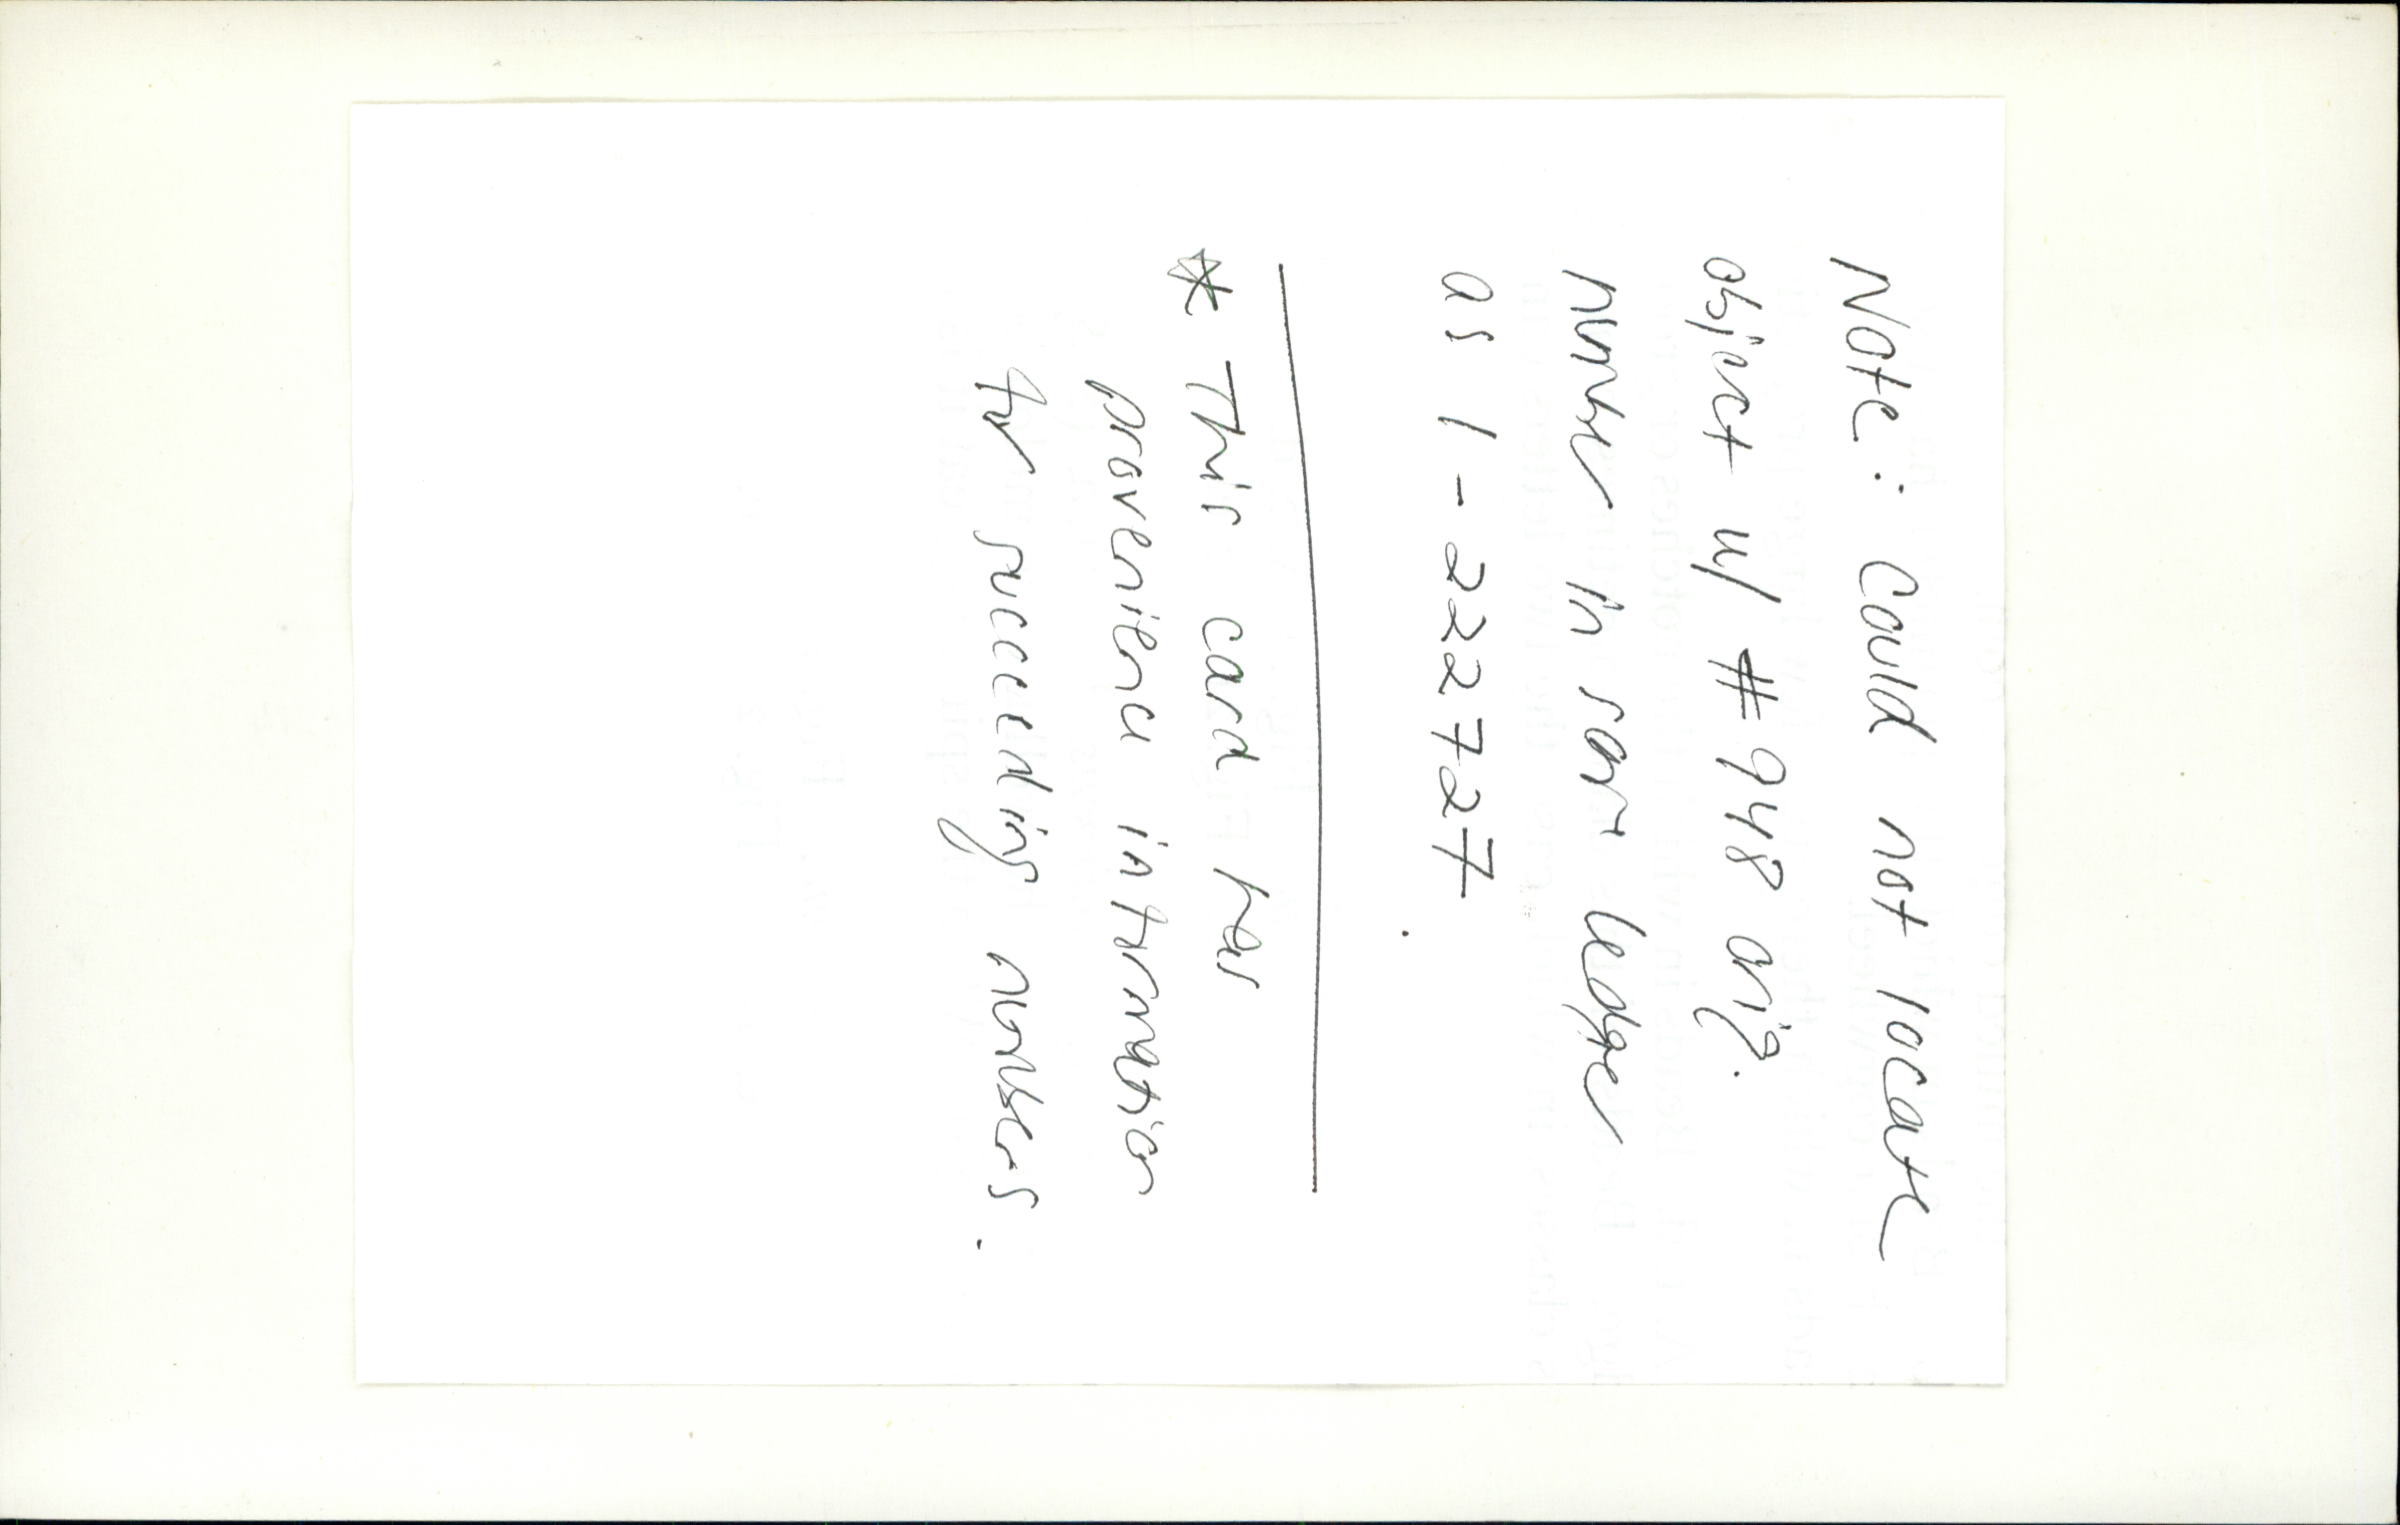 Note: Could not locate
object w/ # 948 orig.
number in same ledger
as 1-222727.
* This card has
provenience information
for succeeding numbers.